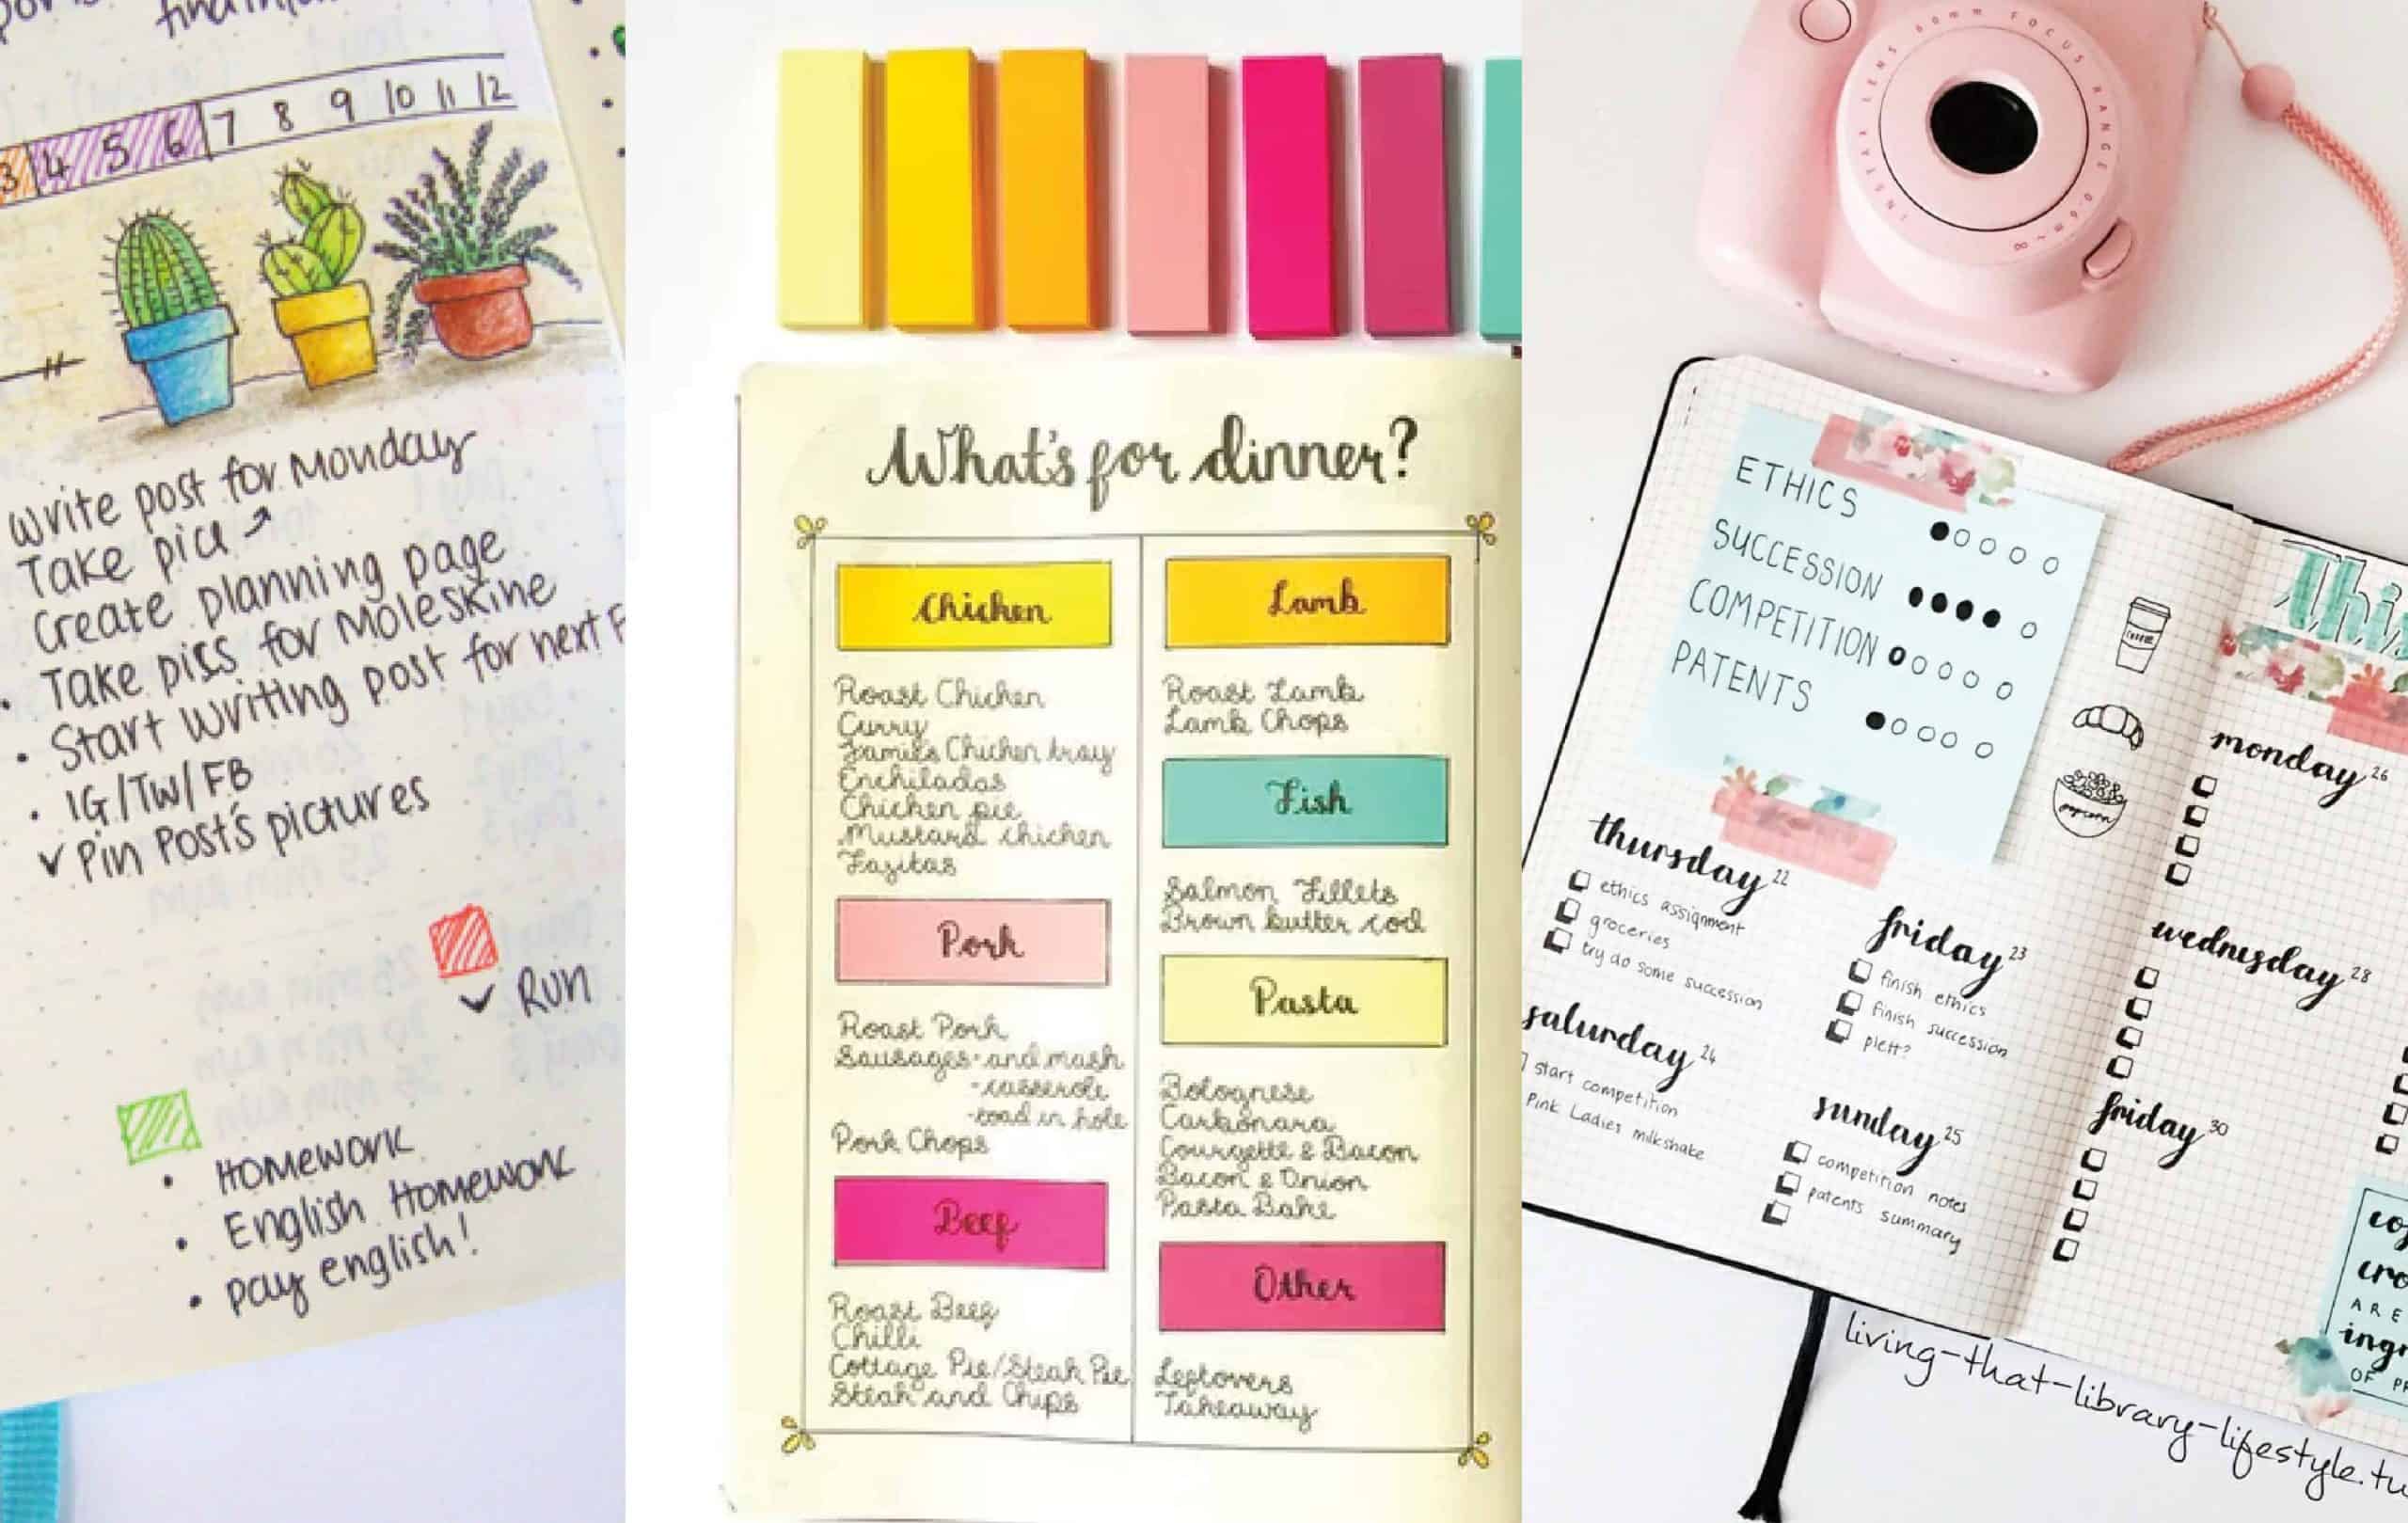 3 4 5 6 7 8 9 10 11 12
Write post for Monday
Take pics
Create planning page
• Take pics for Moleskine
• Start writing post for next F
• IG/TW/FB
✓ Pin Post's pictures
✓ Run
• Homework
• English Homework
• pay english!
What's for dinner?
Chicken
Roast Chicken
Curry
Jamie's Chicken tray
Enchiladas
Chicken pie
Mustard chicken
Fajitas
Pork
Roast Pork
Sausages - and mash
- casserole
- toad in hole
Pork Chops
Beef
Roast Beef
Chilli
Cottage Pie/Steak Pie
Steak and Chips
Lamb
Roast Lamb
Lamb Chops
Fish
Salmon Fillets
Brown butter cod
Pasta
Bolognese
Carbonara
Courgette & Bacon
Bacon & Onion
Pasta Bake
Other
Leftovers
Takeaway
INSTAX LENS 60mm FOCUS RANGE 0.6m~∞
ETHICS
SUCCESSION
COMPETITION
PATENTS
COFFEE
popcorn
thursday 22
ethics assignment
groceries
try do some succession
friday 23
finish ethics
finish succession
plett?
saturday 24
start competition
Pink Ladies milkshake
sunday 25
competition notes
patents summary
Thi
monday 26
wednesday 28
friday 30
cof
cro
ARE
ingr
OF PR
living-that-library-lifestyle.tu